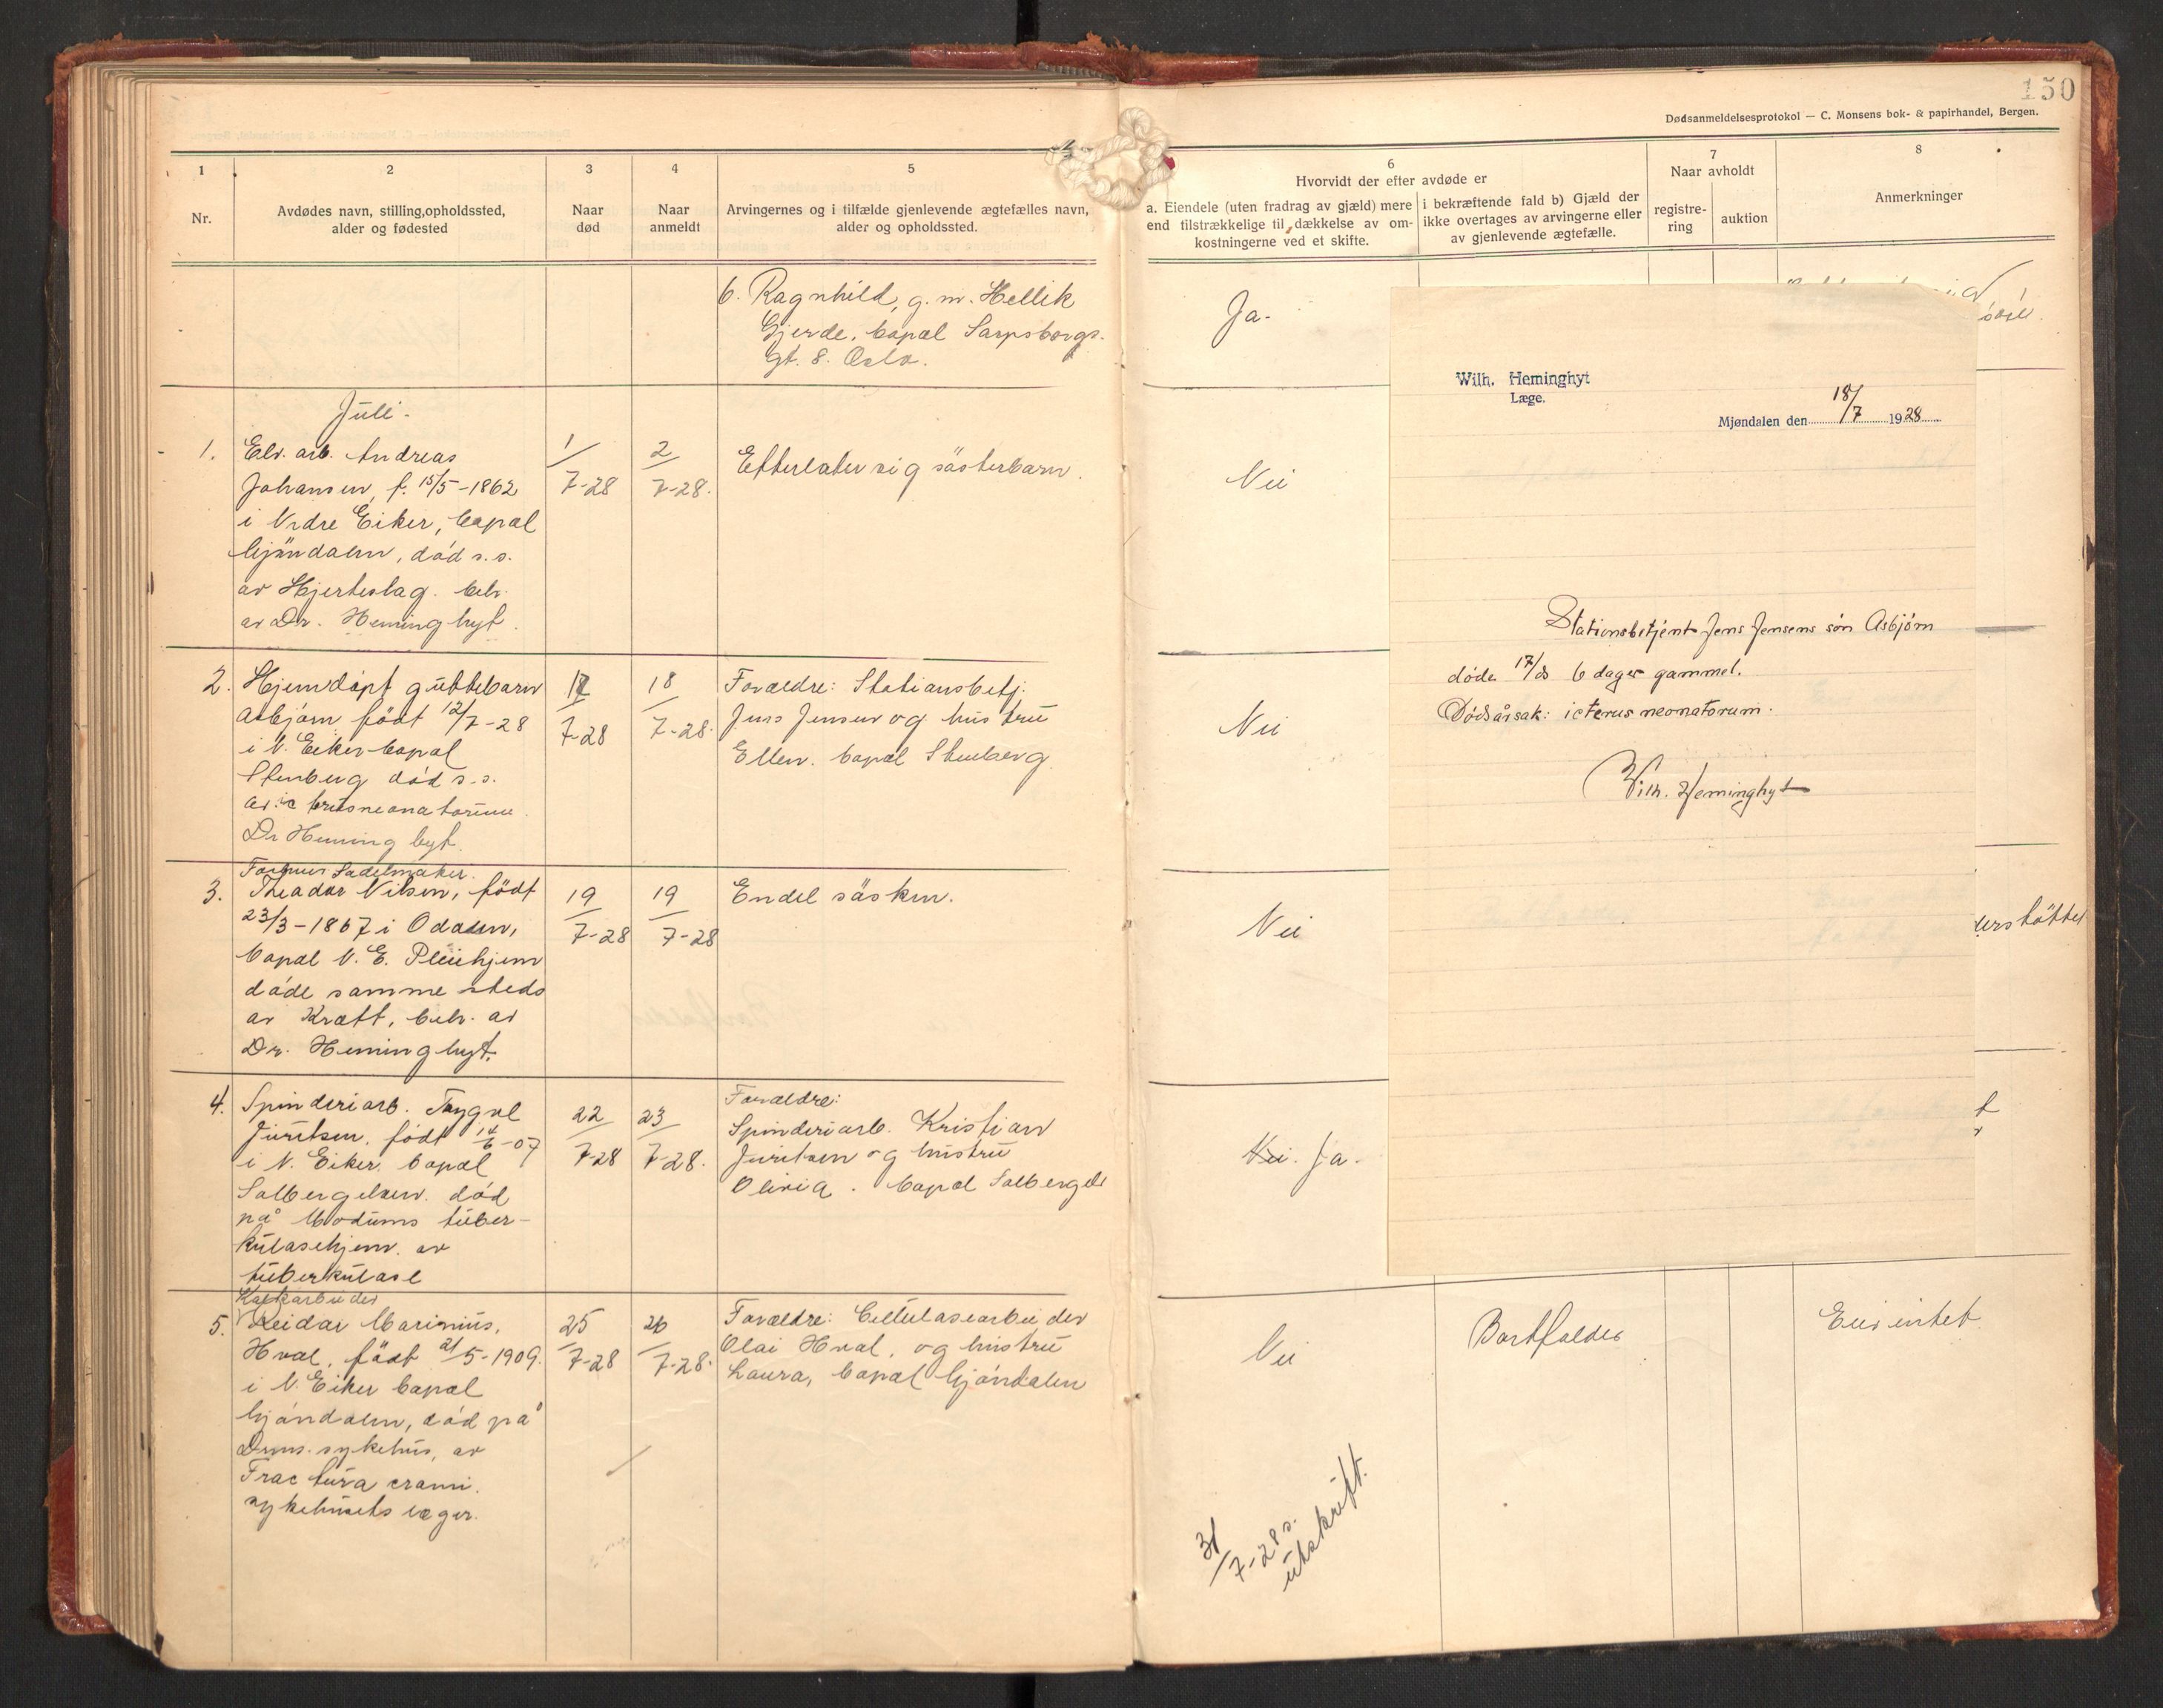 150
Dødsanmeldelsesprotokol — C. Monsens bok- & papirhandel, Bergen.
1
Nr.
2
Avdødes navn, stilling, opholdssted,
alder og fødested
3
Naar
død
4
Naar
anmeldt
5
Arvingernes og i tilfælde gjenlevende ægtefælles navn,
alder og opholdssted.
6
Hvorvidt der efter avdøde er
a. Eiendele (uten fradrag av gjæld) mere
end tilstrækkelige til dækkelse av om-
kostningerne ved et skifte.
i bekræftende fald b) Gjæld der
ikke overtages av arvingerne eller
av gjenlevende ægtefælle.
7
Naar avholdt
registre-
ring
auktion
8
Anmerkninger
6. Ragnhild, g. m. Hellik
Gjerde, bopæl Sarpsborgs.
gt. 8. Oslo.
Ja.
Juli.
1.
Elv. arb. Andreas
Johansen, f. 15/5-1862
i Nedre Eiker, bopæl
Mjöndalen, död s. s.
av Hjerteslag. beh.
av Dr. Heminghyt.
1/7-28
2/7-28.
Efterlater sig søsterbarn.
Nei
2.
Hjemdöpt guttebarn
Asbjørn födt 12/7-28
i N. Eiker bopæl
Stenberg död s. s.
av icterusneonatorum.
Dr Heminghyt.
17/7-28
18/7-28.
Forældre: Stationsbetj.
Jens Jensen og hustru
Ellen. bopæl Stenberg
Nei
3.
Forhenv Sadelmaker.
Theodor Nilsen, födt
23/3-1867 i Odalen,
bopæl N. E. Pleiehjem
döde samme steds
av Kræft, beh. av
Dr. Heminghyt.
19/7-28
19/7-28
Endel søsken.
Nei
4.
Spinderiarb. Trygve
Juritsen. födt 14/6-07
i N. Eiker. bopæl
Solbergelven. död
på Modums tuber-
kulosehjem. av
tuberkulose
22/7-28
23/7-28.
Forældre:
Spinderiarb. Kristian
Juritsen og hustru
Olivia. bopæl Solbergel.
Nei. Ja.
5.
Kalkarbeider
Reidar Marinius,
Hval, födt 21/5-1909.
i N. Eiker bopæl
Mjöndalen, död på
Dms. sykehus, av
Fractura cranii.
sykehusets læger.
25/7-28
26/7-28.
Forældre: Cellulosearbeider
Olai Hval, og hustru
Laura, bopæl Mjöndalen
Nei
Bortfalder
Eier intet
31/7-28 s.
utskrift.
Wilh. Heminghyt
Læge.
Mjøndalen den 18/7 1928
Stationsbetjent Jens Jensens søn Asbjørn
døde 17/ds 6 dager gammel.
Dødsårsak: icterus neonatorum.
Wilh. Heminghyt